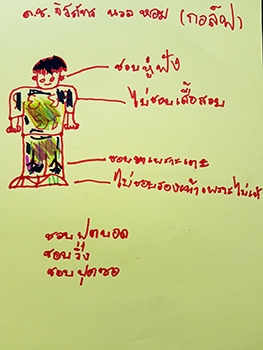 ด.ช. จิรภัทร นวลหอม (กอล์ฟ)
ชอบหูฟัง
ไม่ชอบเสื้อสอบ
ชอบขาเพราะเตะ
ไม่ชอบรองเท้าเพราะไม่เท่
ชอบฟุตบอล
ชอบวิ่ง
ชอบฟุตซอ